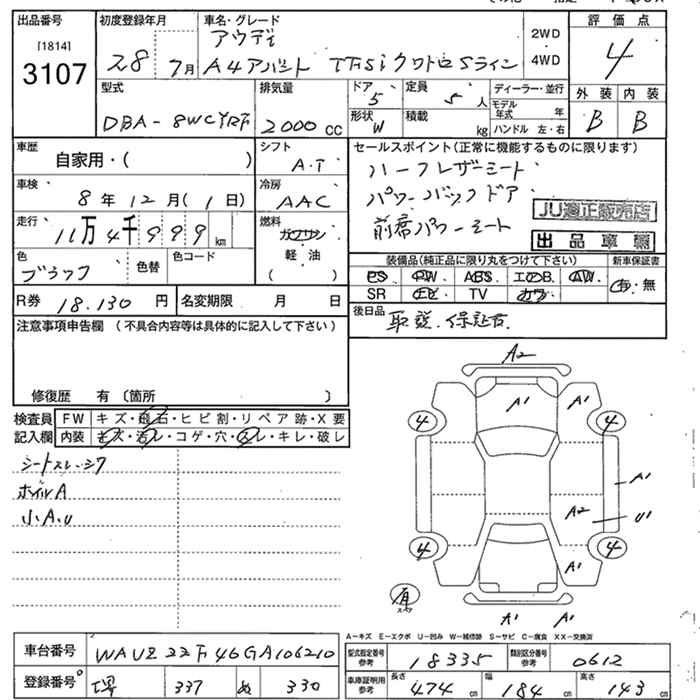 出品番号
[1814]
3107
初度登録年月
28 7月
車名・グレード
アウディ
A4アバント TFSiクワトロSライン
2WD
4WD
評価点
4
型式
DBA-8WCYRF
排気量
2000 cc
ドア 5
形状 W
定員 5 人
積載 kg
ディーラー・並行
モデル年式 年
ハンドル 左・右
外装 内装
B B
車歴
自家用・( )
シフト
A.T
車検
8年12月(1日)
冷房
AAC
走行
11万4千999km
燃料
ガソリン
軽油
( )
色
ブラック
色替
色コード
セールスポイント(正常に機能するものに限ります)
ハーフレザーシート
パワーバックドア
前席パワーシート
JU適正販売店
出品車輌
装備品(純正品に限り丸をつけて下さい) 新車保証書
PS PW ABS エアB AW 有・無
SR TV カワ
R券 18.130 円
名変期限 月 日
後日品 取説.保証書.
注意事項申告欄 (不具合内容等は具体的に記入して下さい)
修復歴 有 〔箇所 〕
検査員記入欄
FW キズ・飛石・ヒビ割・リペア跡・X要
内装 キズ・汚レ・コゲ・穴・スレ・キレ・破レ
シートスレ.シワ
ホイルA
小A.U
A2
A1 A1
4 4
A1
A2 U1
4 4
A1
有
A1 A1
A-キズ E-エクボ U-凹み W-補修跡 S-サビ C-腐食 XX-交換済
車台番号 WAUZZZF46GA106210
登録番号 堺 337 ぬ 330
型式指定番号 参考 18335
類別区分番号 参考 0612
車庫証明用 参考
長さ 474 cm
幅 184 cm
高さ 143 cm